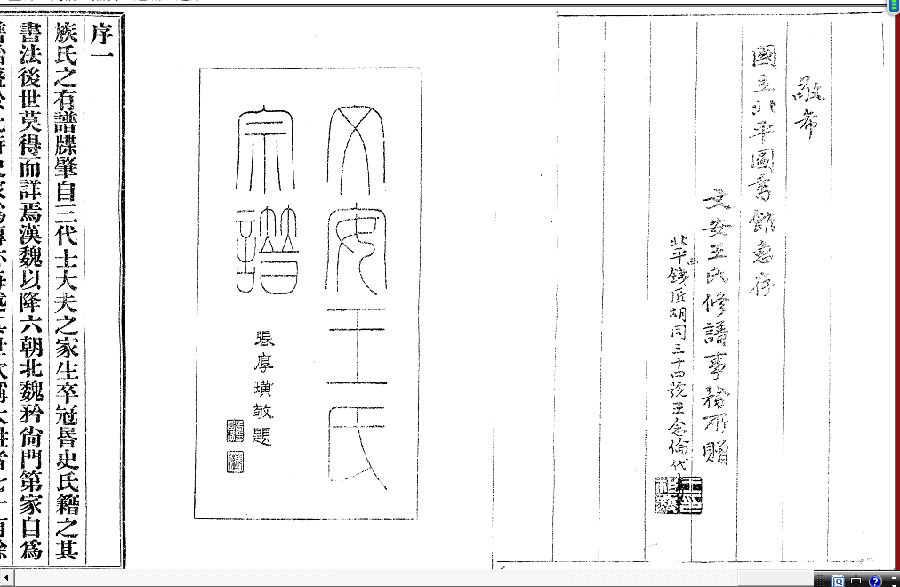 敬希
國立北平圖書館惠存
文安王氏修譜事務所贈
北平錢匠胡同三十四號王念倫代
文安王氏
宗譜
張厚璜敬題
序一
族氏之有譜牒肇自三代士大夫之家生卒冠昏史氏籍之其
書法後世莫得而詳焉漢魏以降六朝北魏矜尚門第家自爲